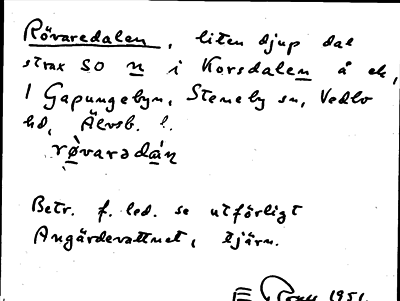 Rövaredalen, liten djup dal
strax SO n i Korsdalen å ek,
1 Gapungebyn, Steneby sn, Vedbo
hd, Älvsb. l.
røvaradán
Betr. f. led. se utförligt
Angärdevattnet, tjärn.
1951.